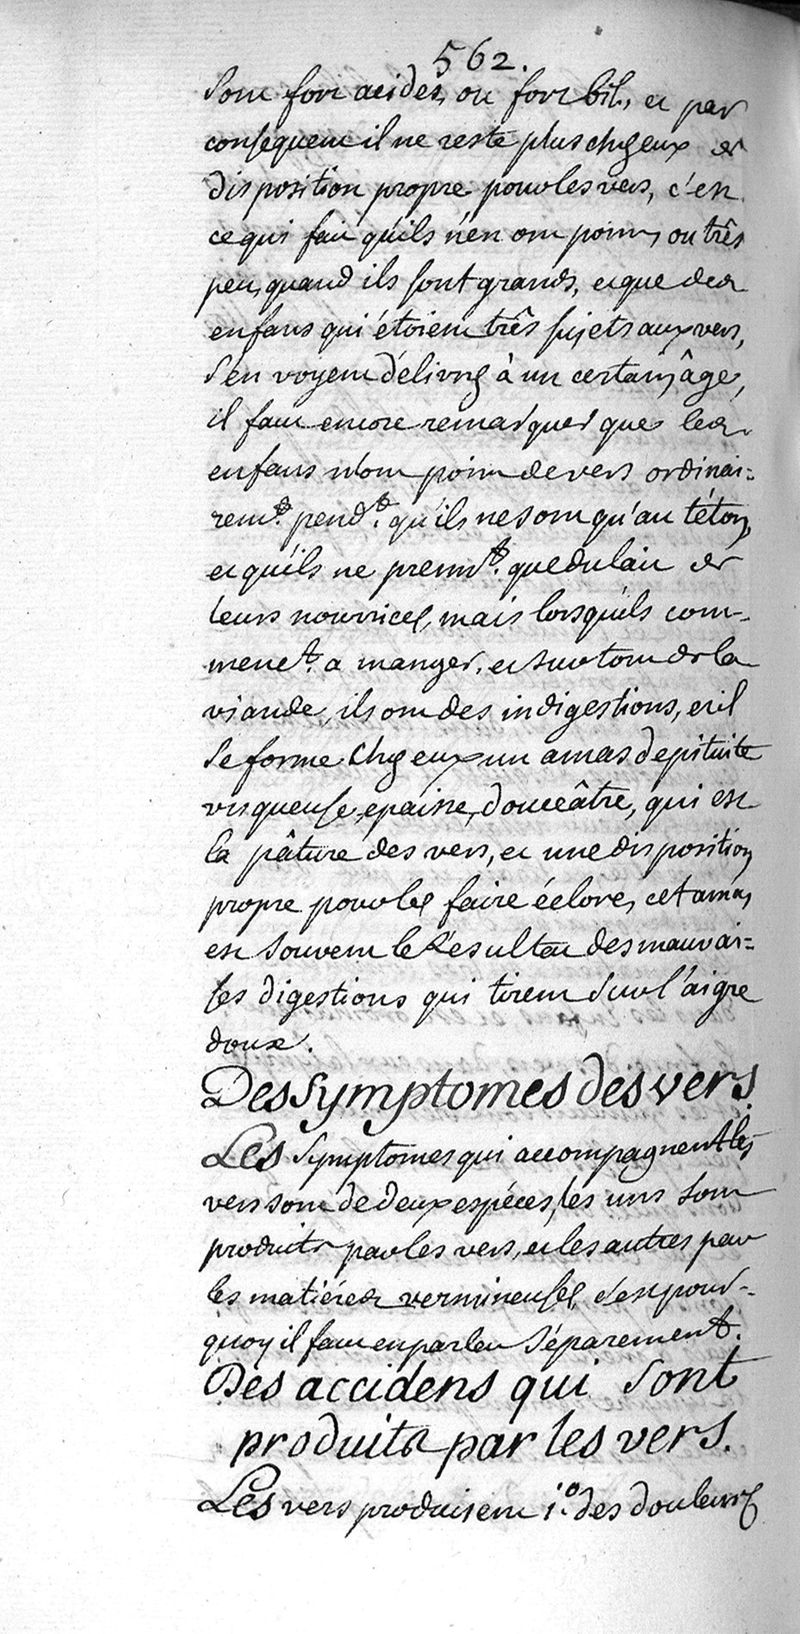 562.
sont fort acides, ou fort bil., et par
consequent il ne reste plus chez eux de
disposition propre pour les vers, c'est
ce qui fait qu'ils n'en ont point, ou três
peu, quand ils sont grands, et que des
enfans qui étoient três sujets aux vers,
s'en voyent délivrés à un certain âge,
il faut encore remarquer que les
enfans n'ont point de vers ordinai=
remt. pendt. qu'ils ne sont qu'au téton,
et qu'ils ne prennt. que du lait de
leurs nourrices, mais lorsqu'ils com-
menct. a manger, et surtout de la
viande, ils ont des indigestions, et il
se forme chez eux un amas de pituite
visqueuse, epaisse, douceâtre, qui est
la pâture des vers, et une disposition
propre pour les faire éclore, cet amas
est souvent le resultat des mauvai=
ses digestions qui tirent sur l'aigre
doux.
Des symptomes des vers.
Les symptomes qui accompagnent les
vers sont de deux espéces, les uns sont
produits par les vers, et les autres par
les matiéres vermineuses, c'est pour-
quoy il faut en parler séparement.
Des accidens qui sont
produits par les vers.
Les vers produisent 1.° des douleurs